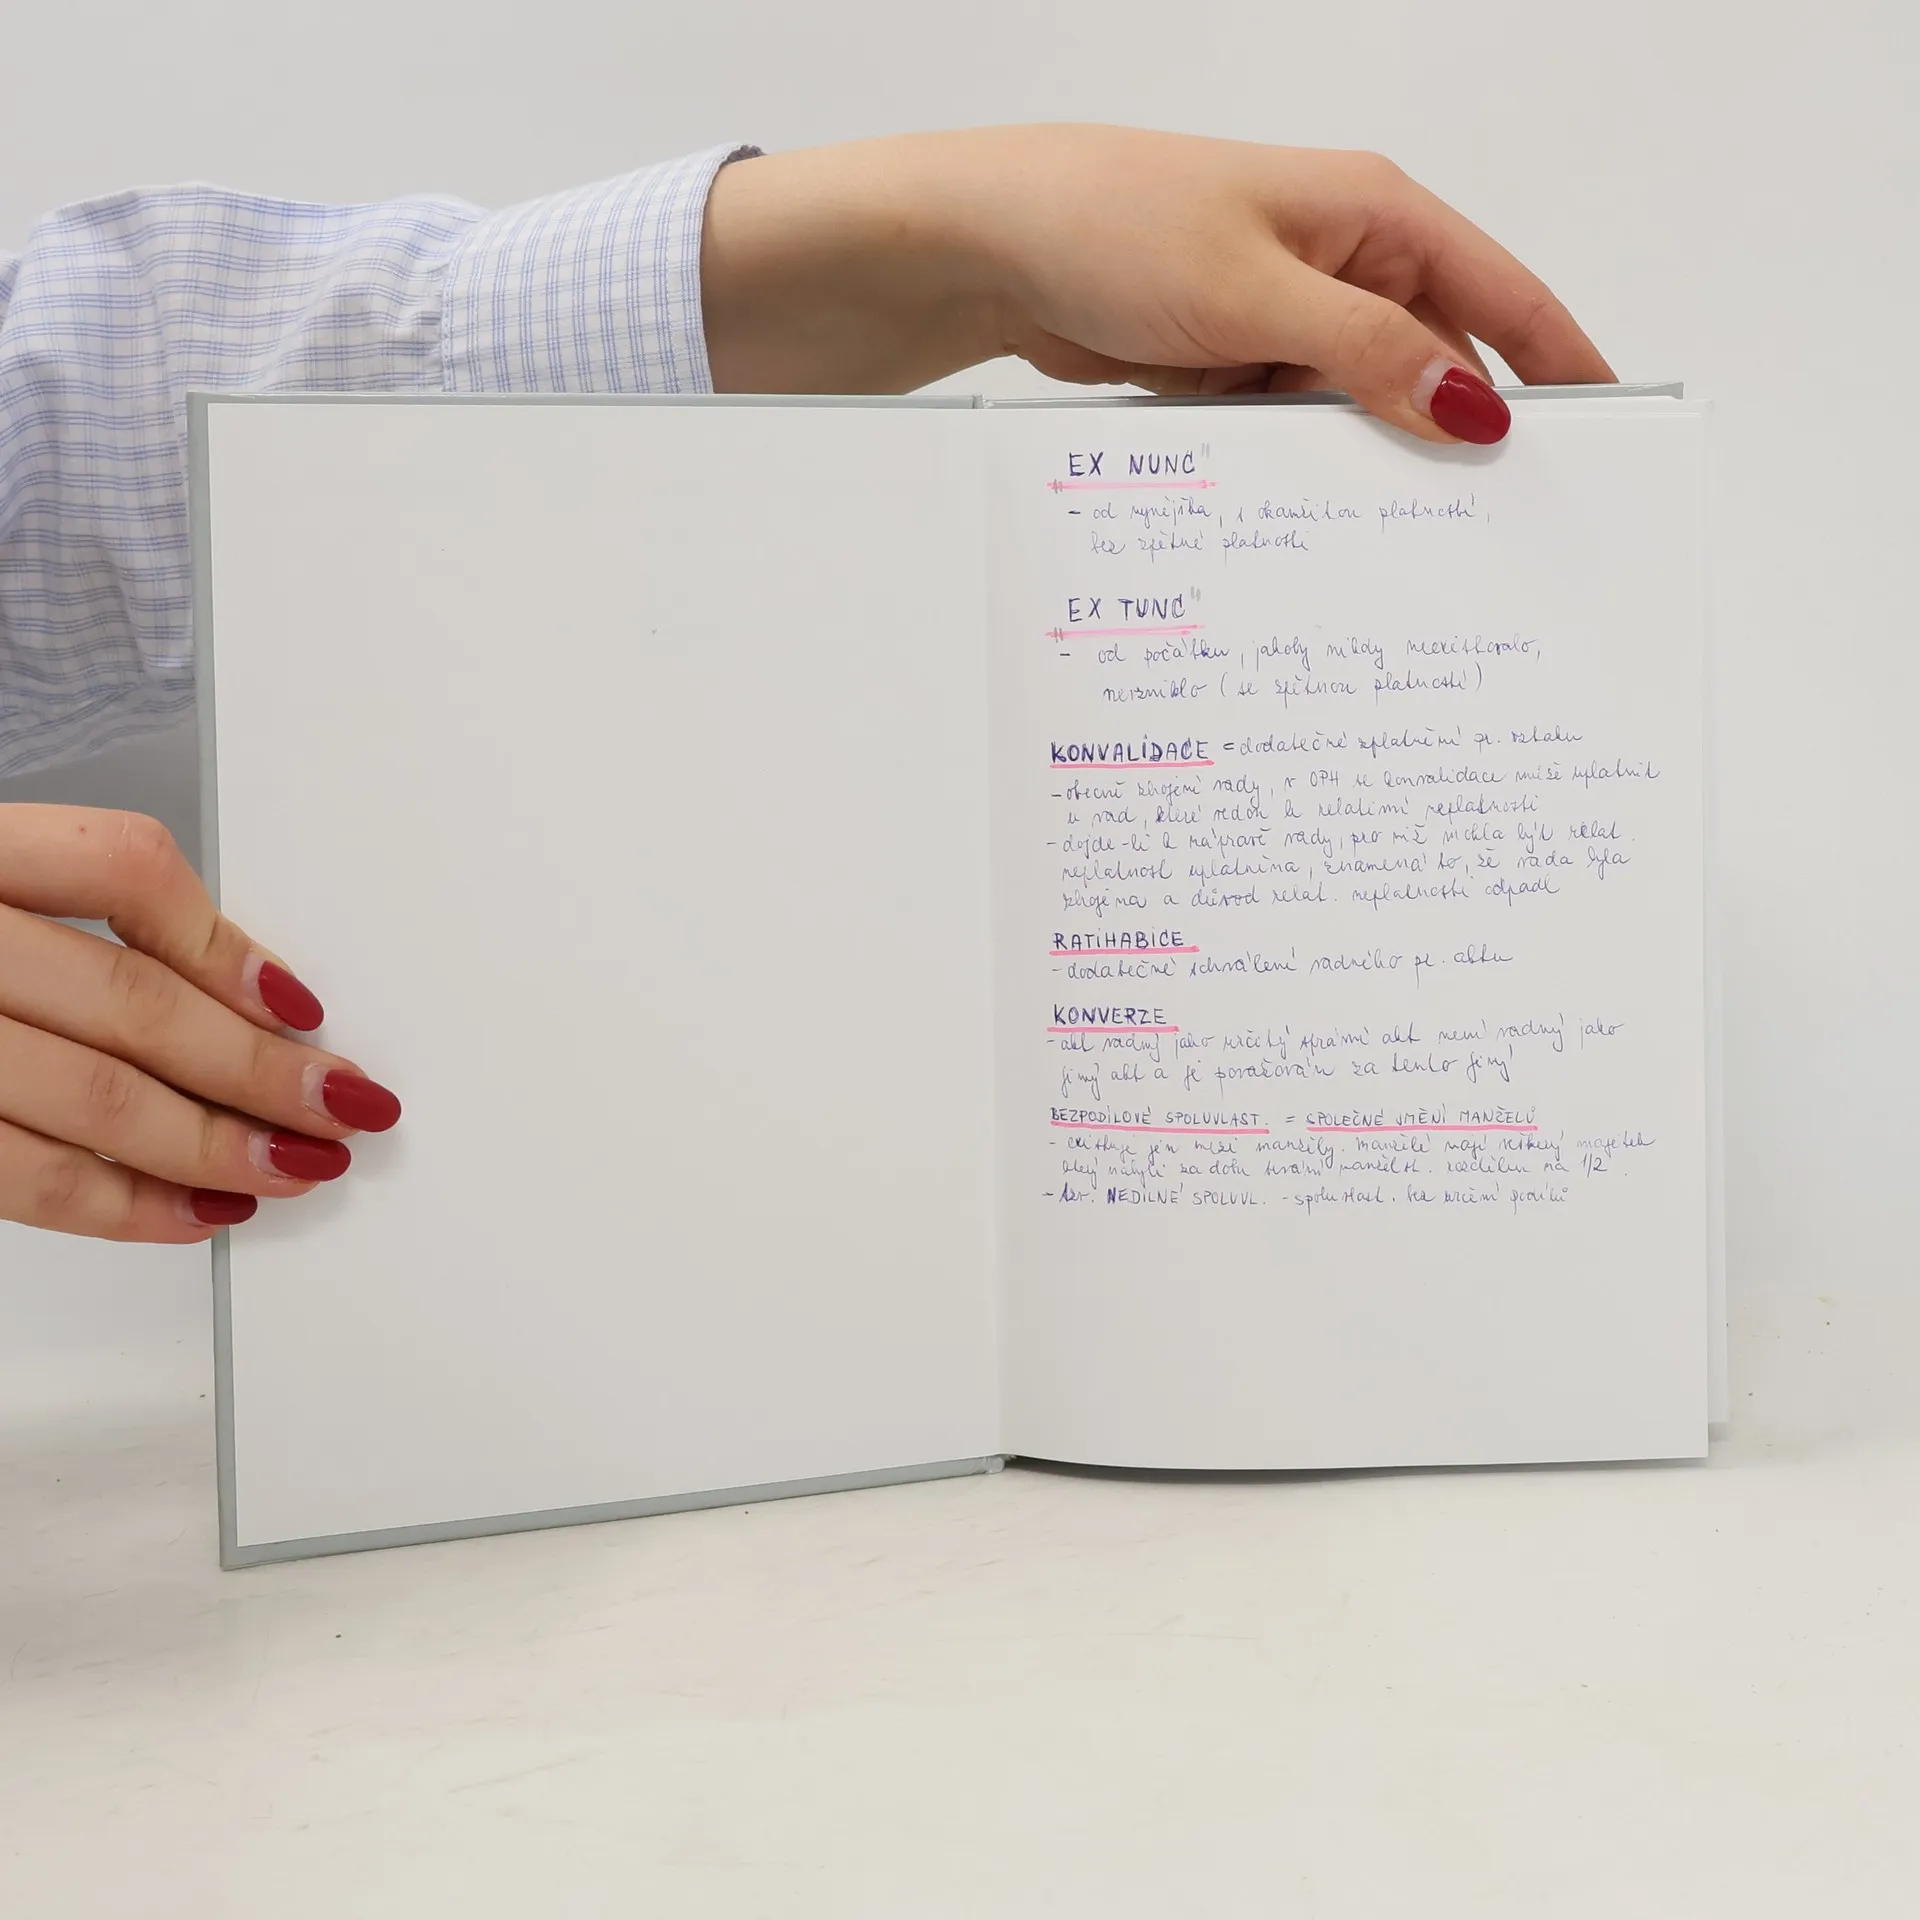 "EX NUNC"
- od nynějška, s okamžitou platností,
bez zpětné platnosti
"EX TUNC"
- od počátku, jakoby nikdy neexistovalo,
nevzniklo (se zpětnou platností)
KONVALIDACE = dodatečné zplatnění pr. vztahu
- obecné zhojení vady, v OPH se konvalidace může uplatnit
u vad, které vedou k relativní neplatnosti
- dojde-li k nápravě vady, pro niž mohla být relat.
neplatnost uplatněna, znamená to, že vada byla
zhojena a důvod relat. neplatnosti odpadl
RATIHABICE
- dodatečné schválení vadného pr. aktu
KONVERZE
- akt vadný jako určitý správní akt není vadný jako
jiný akt a je považován za tento jiný
BEZPODÍLOVÉ SPOLUVLAST. = SPOLEČNÉ JMĚNÍ MANŽELŮ
- existuje jen mezi manžely. Manželé mají veškerý majetek
který nabyli za dobu trvání manželst. rozdělen na 1/2.
- tzv. NEDÍLNÉ SPOLUVL. - spoluvlast. bez určení podílů